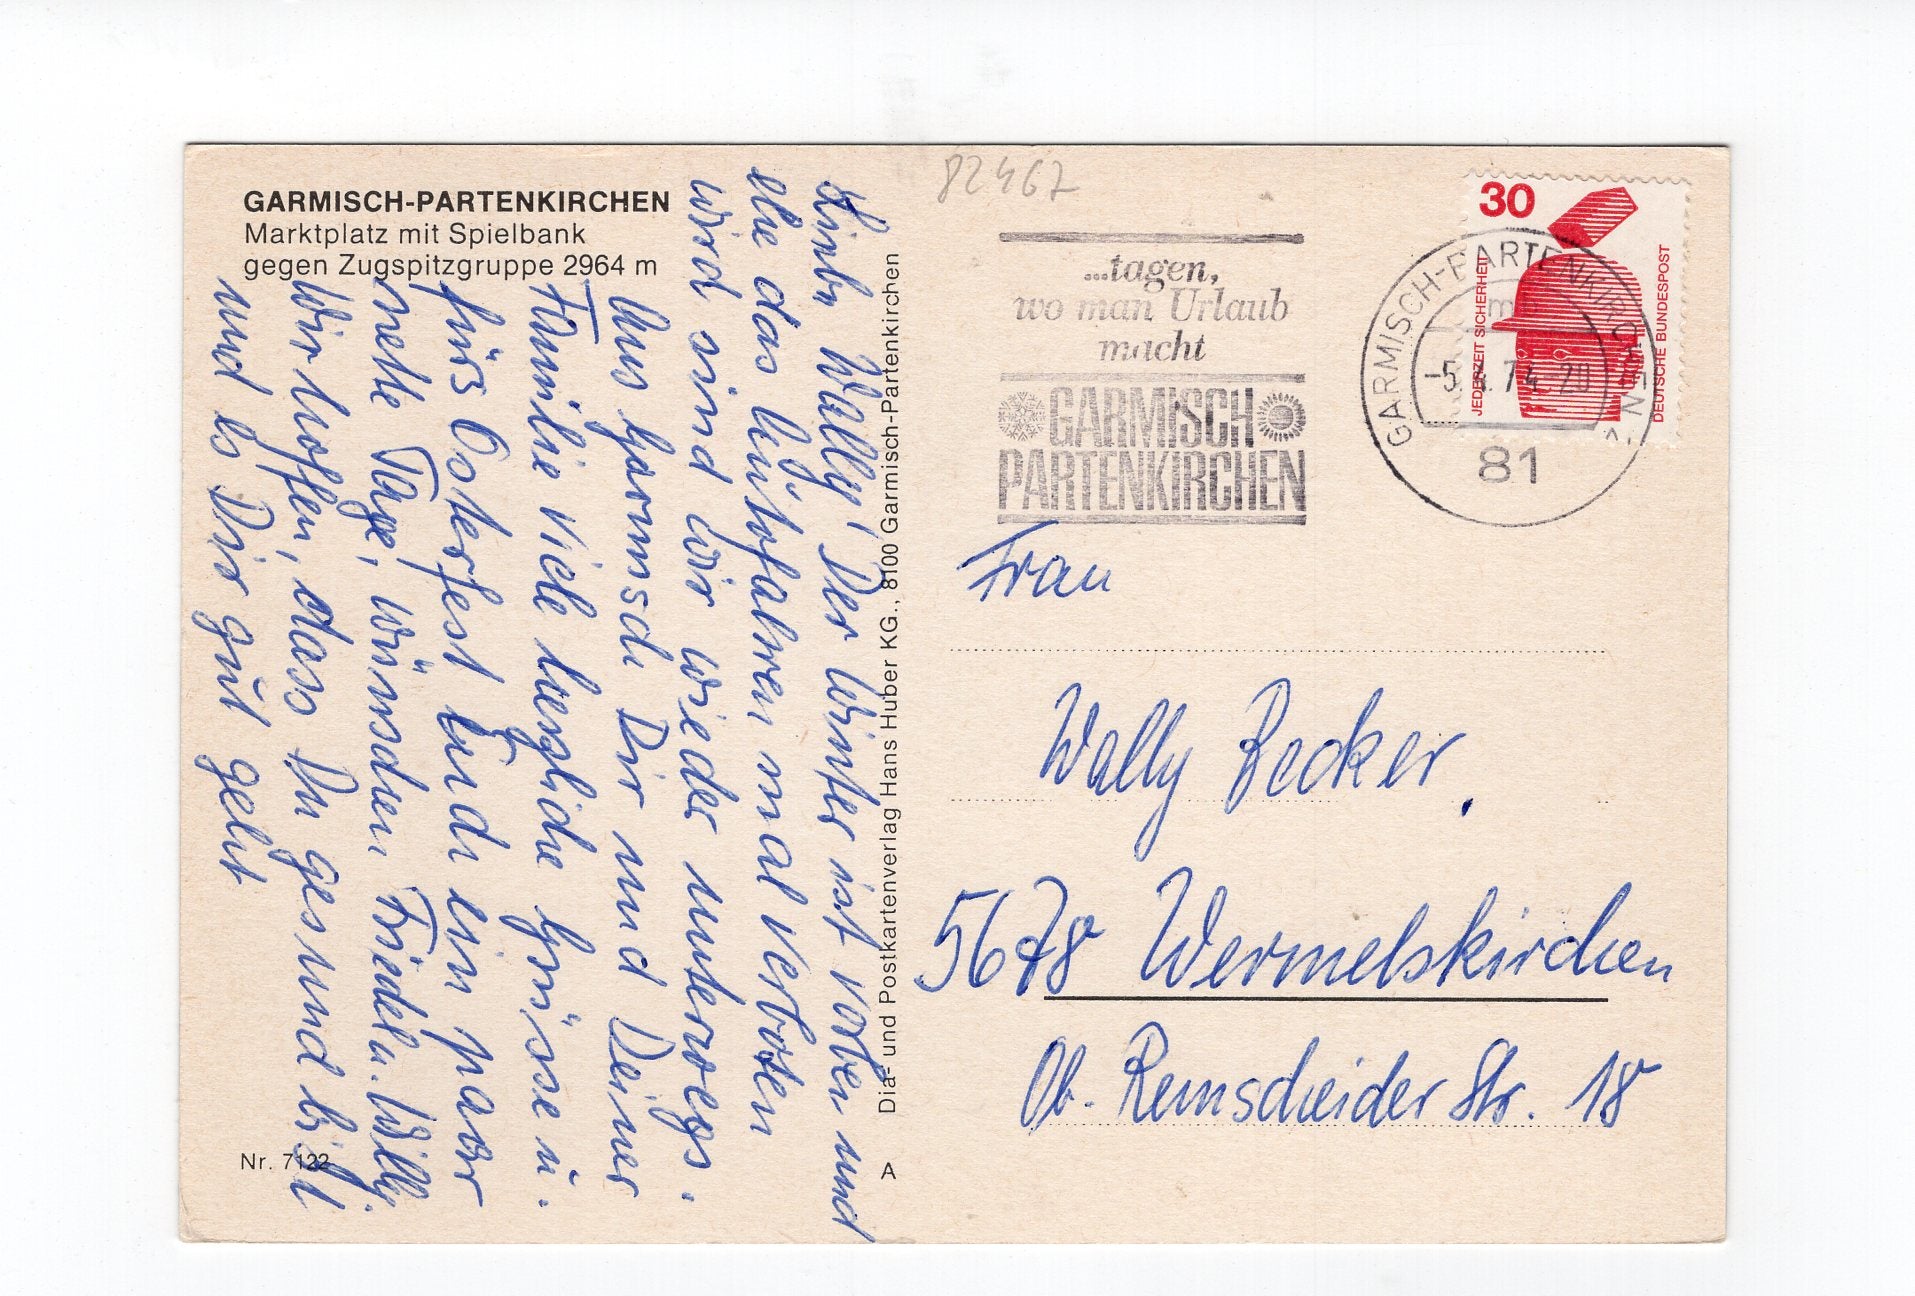 GARMISCH-PARTENKIRCHEN
Marktplatz mit Spielbank
gegen Zugspitzgruppe 2964 m
Liebe Wally! Der Winter ist vorbei und
ehe das Autofahren mal verboten
wird sind wir wieder unterwegs.
Aus Garmisch Dir und Deiner
Familie viele herzliche Grüsse u.
fürs Osterfest Euch ein paar
nette Tage, wünschen Friedel u. Willy.
Wir hoffen, dass Du gesund bist
und es Dir gut geht
Nr. 7122
Dia- und Postkartenverlag Hans Huber KG., 8100 Garmisch-Partenkirchen
A
82467
...tagen,
wo man Urlaub
macht
GARMISCH
PARTENKIRCHEN
30
JEDERZEIT SICHERHEIT
DEUTSCHE BUNDESPOST
GARMISCH-PARTENKIRCHEN
-5.4.74-20
81
Frau
Wally Becker.
5678 Wermelskirchen
Ob. Remscheider Str. 18